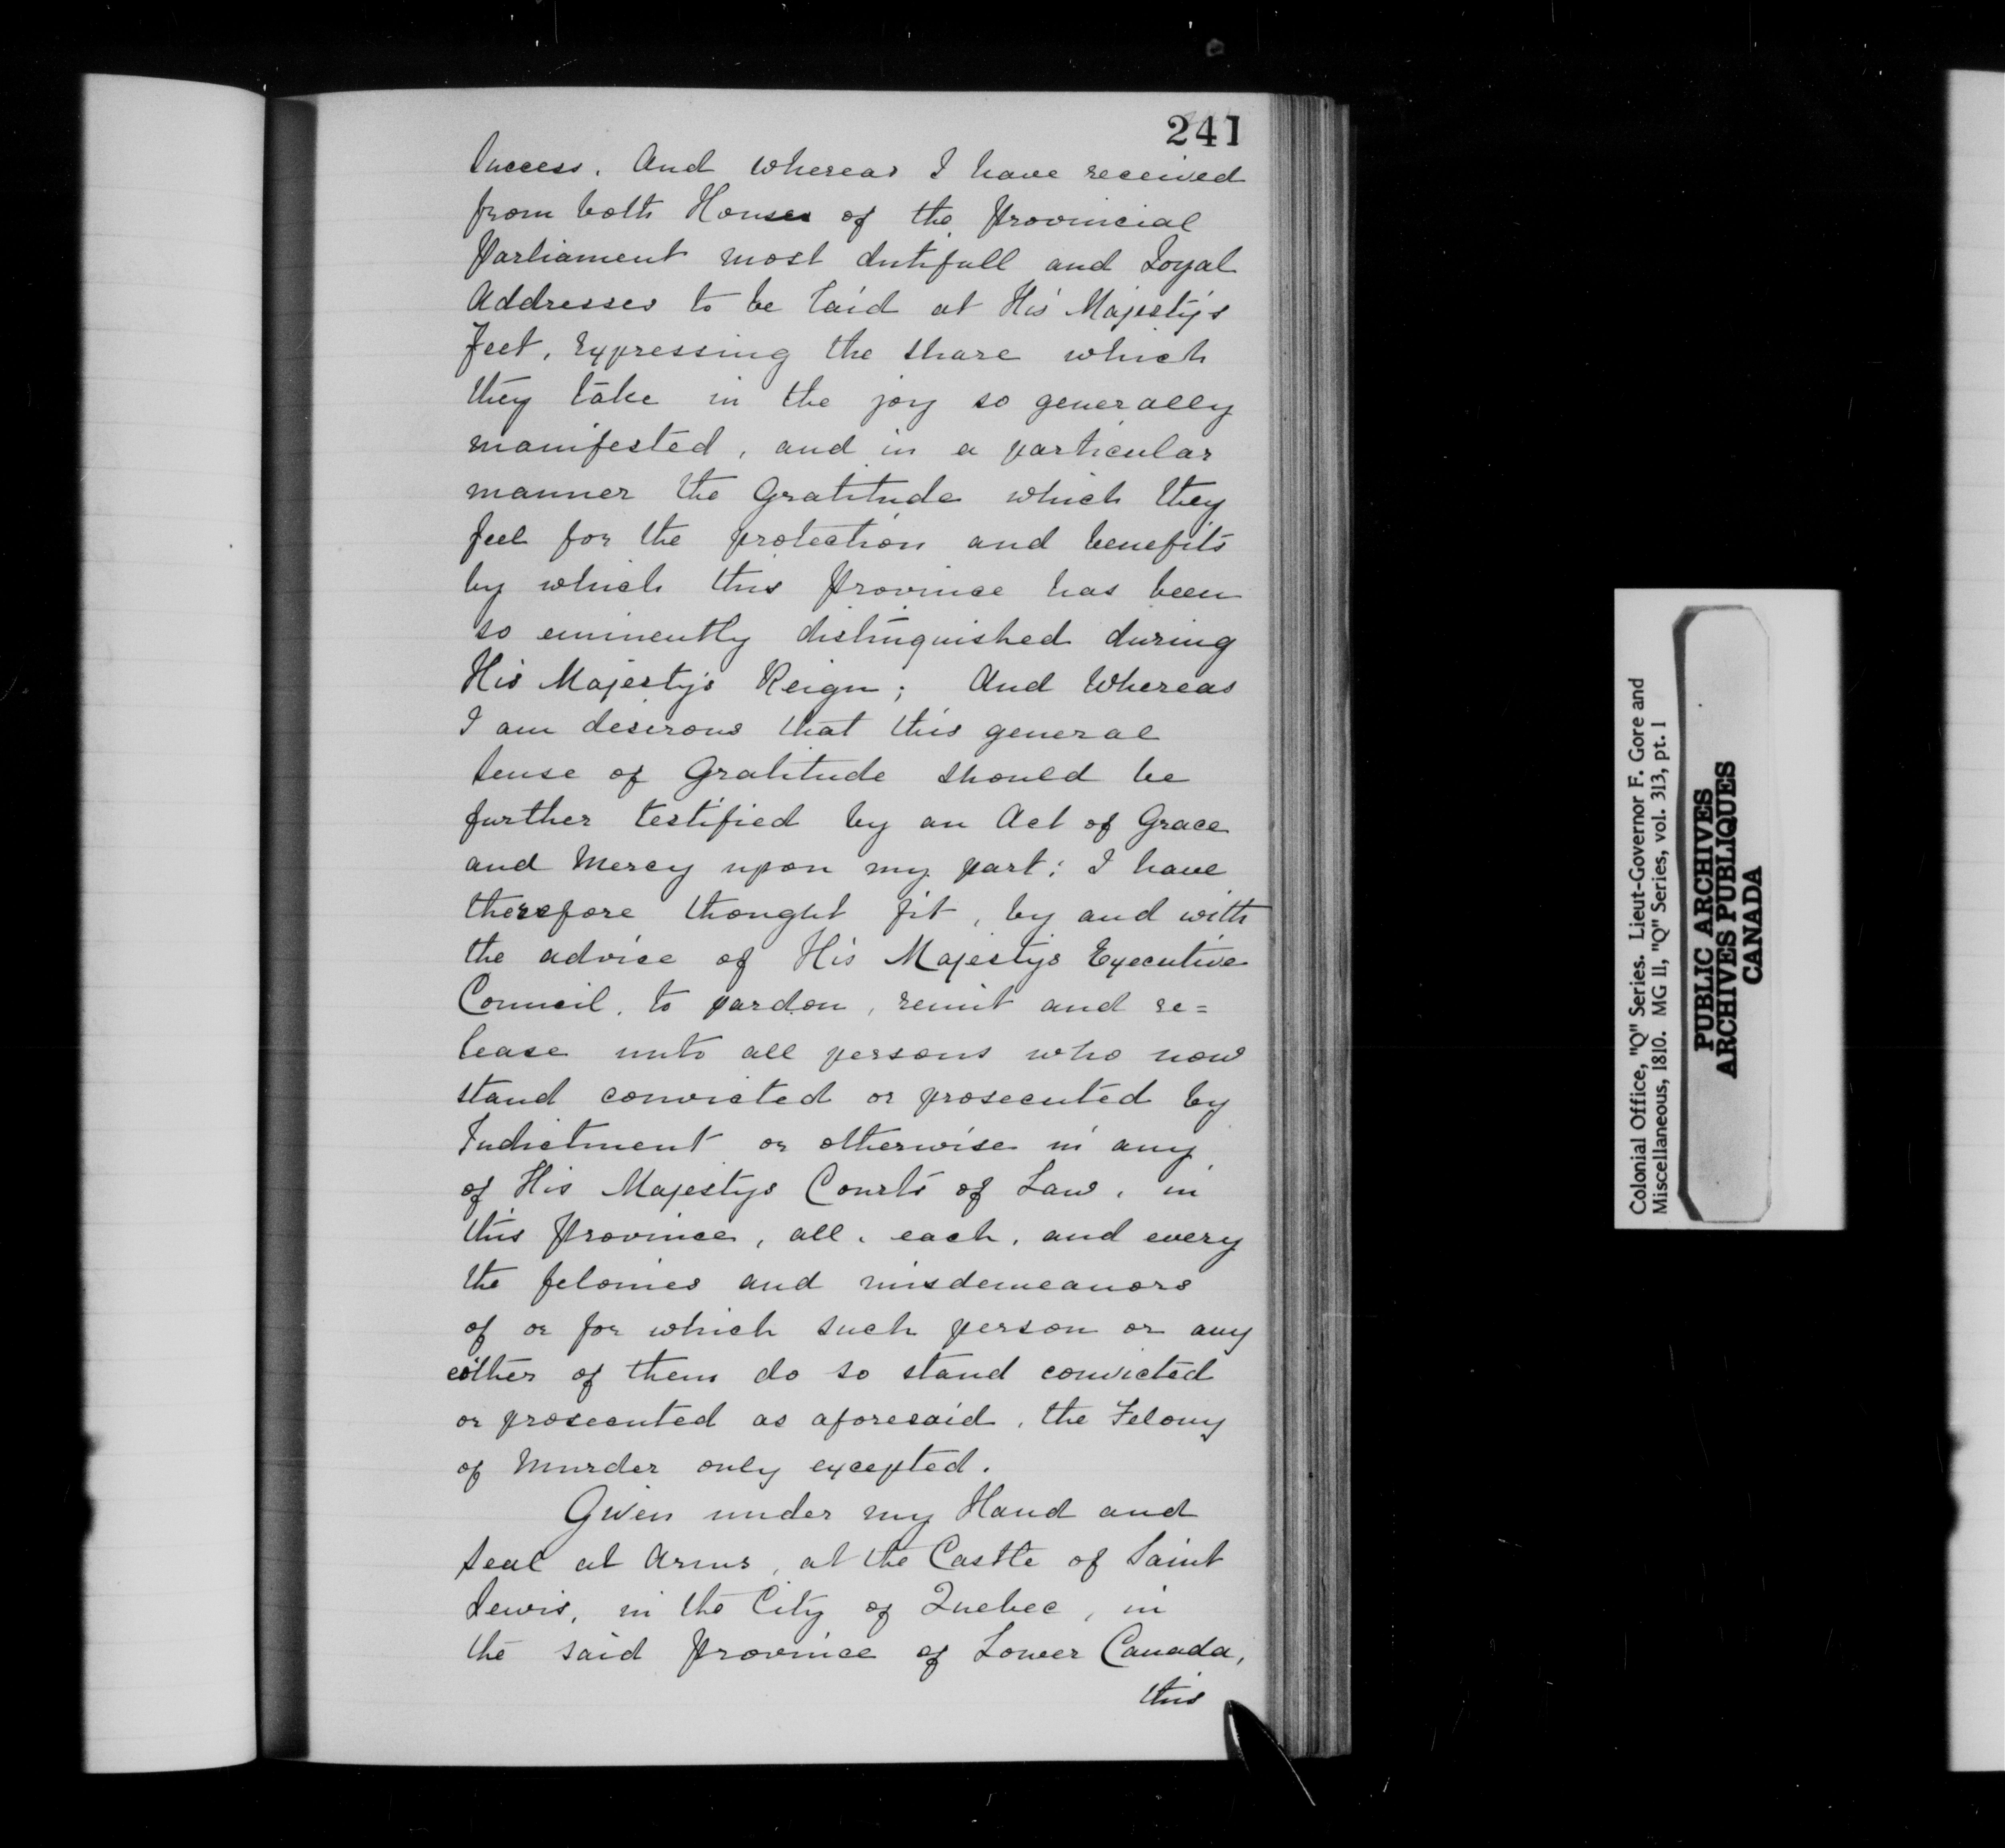 241
Success. And whereas I have received
from both Houses of the Provincial
Parliament most dutifull and Loyal
Addresses to be laid at His Majesty's
Feet, Expressing the share which
they take in the joy so generally
manifested, and in a particular
manner the Gratitude which they
feel for the protection and benefits
by which this Province has been
so eminently distinguished during
His Majesty's Reign; And Whereas
I am desirous that this general
Sense of Gratitude should be
further testified by an Act of Grace
and Mercy upon my part: I have
therefore thought fit, by and with
the advice of His Majestys Executive
Council, to pardon, remit and re=
lease unto all persons who now
stand convicted or prosecuted by
Indictment or otherwise in any
of His Majestys Courts of Law, in
this Province, all, each, and every
the felonies and misdemeanors
of or for which such person or any
either of them do so stand convicted
or prosecuted as aforesaid, the Felony
of Murder only excepted.
Given under my Hand and
Seal at Arms, at the Castle of Saint
Lewis, in the City of Quebec, in
the said Province of Lower Canada,
this
Colonial Office, "Q" Series. Lieut-Governor F. Gore and
Miscellaneous, 1810. MG 11, "Q" Series, vol. 313, pt. 1
PUBLIC ARCHIVES
ARCHIVES PUBLIQUES
CANADA